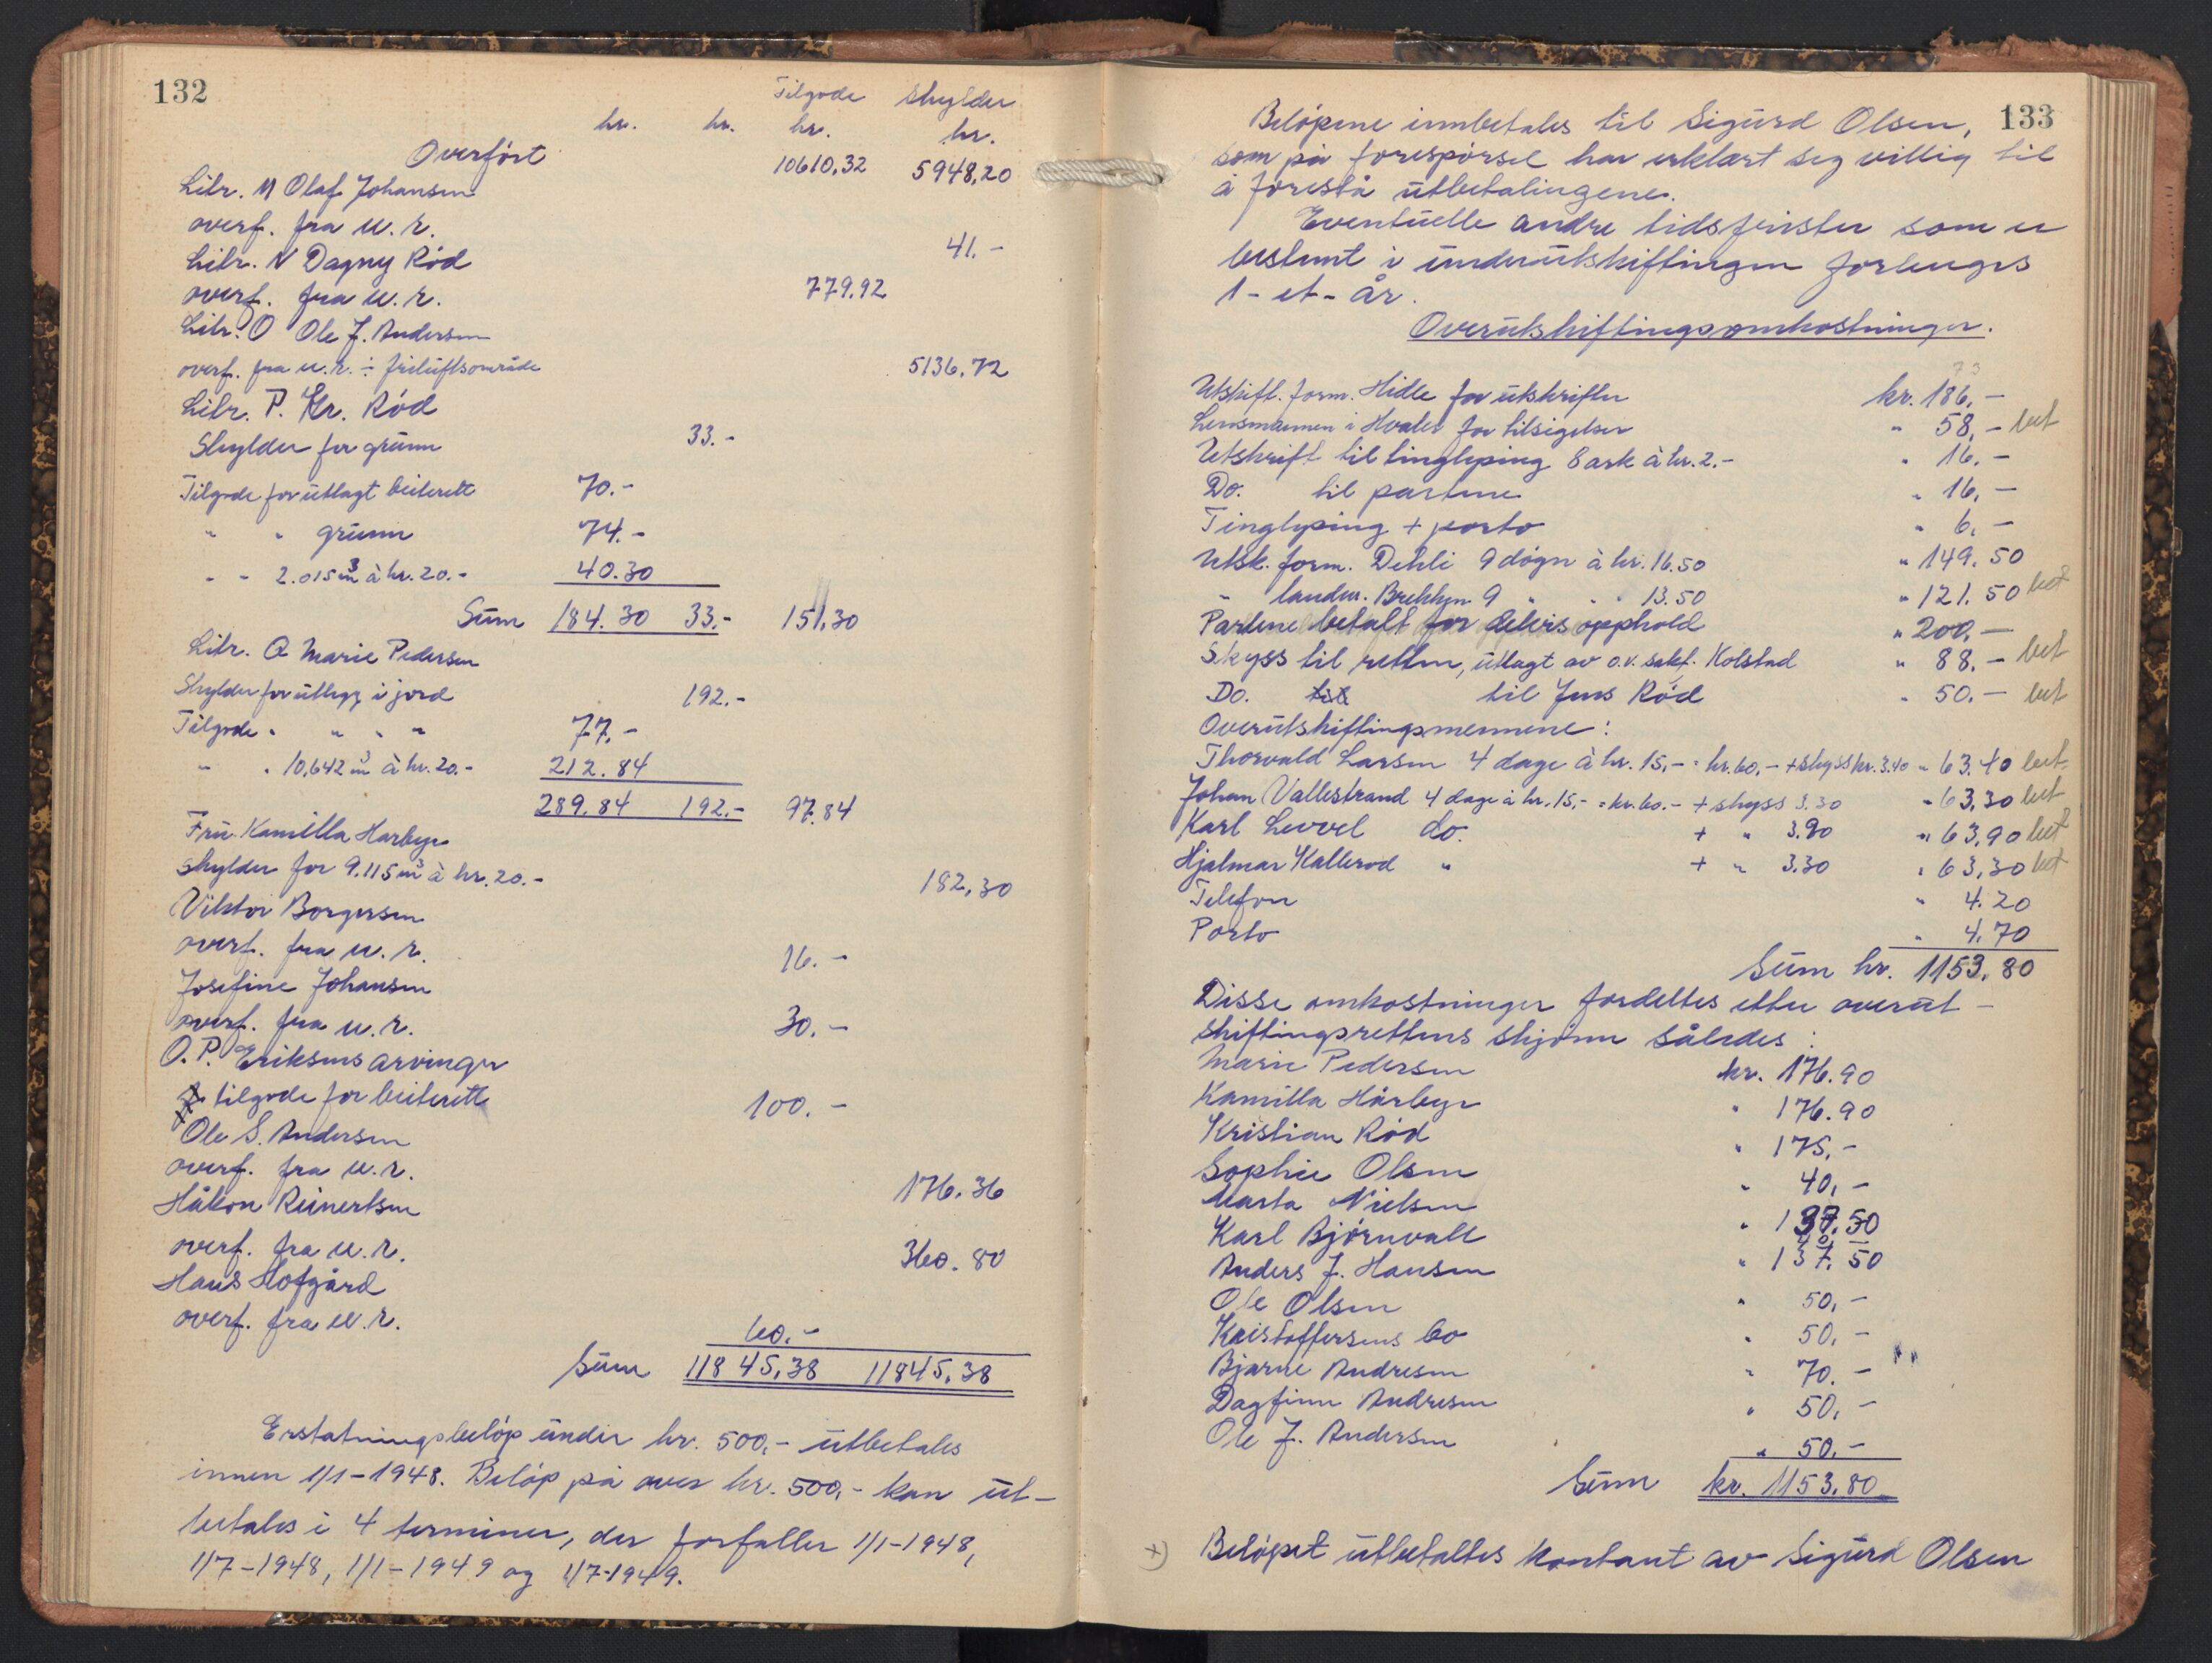 132
Tilgode Skylder
kr. kr. kr. kr.
Overført 10610,32 5948,20
Litr. M Olaf Johansen
overf. fra u.r. 41.-
Litr. N Dagny Rød
overf. fra u.r. 779.92
Litr. O Ole J. Andersen
overf. fra u.r. ÷ friluftsområde 5136.72
Litr. P. Kr. Rød
Skylder for grunn 33.-
Tilgode for utlagt beiterett 70.-
" " grunn 74.-
" " 2.015 m³ à kr. 20.- 40.30
Sum 184.30 33.- 151,30
Litr. Q Marie Pedersen
Skylder for utlegg i jord 192.-
Tilgode " " " " 77.-
" " 10,642 m³ à kr. 20.- 212.84
289.84 192.- 97.84
Fru Kamilla Harbye
skylder for 9.115 m³ à kr. 20.- 182,30
Viktor Borgersen
overf. fra u.r. 16.-
Josefine Johansen
overf. fra u.r. 30.-
O. P. Eriksens arvinger
tilgode for beiterett 100.-
Ole S. Andersen
overf. fra u.r. 176.36
Håkon Reinertsen
overf. fra u.r. 360.80
Hans Hofgård
overf. fra u.r. 60.-
Sum 11845,38 11845,38
Erstatningsbeløp under kr. 500,- utbetales
innen 1/1-1948. Beløp på over kr. 500,- kan ut-
betales i 4 terminer, der forfaller 1/1-1948,
1/7-1948, 1/1-1949 og 1/7-1949.
133
Beløpene innbetales til Sigurd Olsen,
som på forespørsel har erklært seg villig til
å forestå utbetalingene.
Eventuelle andre tidsfrister som er
bestemt i underutskiftingen forlenges
1-et-år.
Overutskiftingsomkostninger.
73
Utskift. form. Hidle for utskrifter kr. 186,-
Lensmannen i Hvaler for tilsigelser " 58,- bet
Utskrift til tinglysing 8 ark à kr. 2.- " 16,-
Do. til partene " 16,-
Tinglysing + porto " 6,-
Utsk. form. Dehli 9 døgn à kr. 16.50 " 149.50
" landm. Brekken 9 " " " 13.50 " 121.50 bet
Partene betalt for delvis opphold " 200,-
Skyss til retten, utlagt av o.r. sakf. Kolstad " 88.- bet
Do. til til Jens Rød " 50.- bet
Overutskiftingsmennene:
Thorvald Larsen 4 dage à kr. 15,- = kr. 60,- + skyss kr. 3.40 " 63.40 bet.
Johan Vallestrand 4 dage à kr. 15,- = kr. 60.- + skyss 3.30 " 63,30 bet
Karl Levvel do. + " 3.90 " 63,90 bet
Hjalmar Kallerød " + " 3.30 " 63,30 bet
Telefon " 4.20
Porto " 4.70
Sum kr. 1153.80
Disse omkostninger fordeltes etter overut-
skiftingsrettens skjønn således:
Marie Pedersen kr. 176.90
Kamilla Hårbye " 176.90
Kristian Rød " 175,-
Sophie Olsen " 40,-
Marta Nielsen
Karl Bjørnvall " 137.50
Anders J. Hansen " 137.50
Ole Olsen " 50,-
Kristoffersens bo " 50,-
Bjarne Andresen " 70.-
Dagfinn Andresen " 50,-
Ole J. Andersen " 50.-
Sum kr. 1153.80
x) Beløpet utbetaltes kontant av Sigurd Olsen